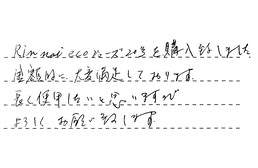 Rinnai ecoシーズ24号を購入致しました
全額的に大変満足しております
長く使用したいと思いますが
よろしくお願い致します